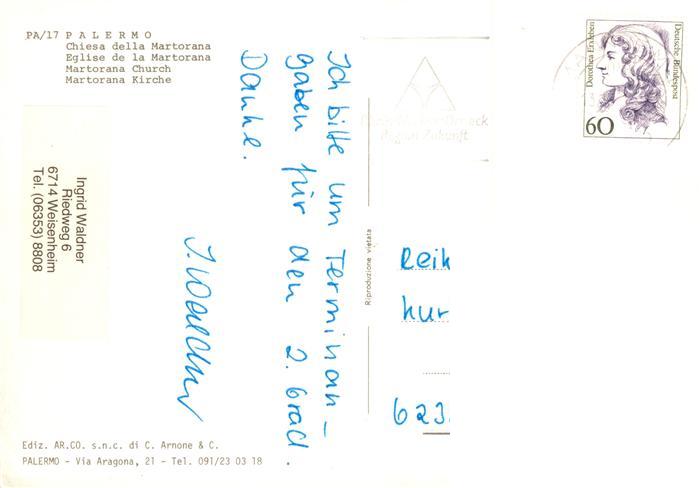 PA/17 PALERMO
Chiesa della Martorana
Eglise de la Martorana
Martorana Church
Martorana Kirche
Ingrid Waldner
Riedweg 6
6714 Weisenheim
Tel. (06353) 8808
Ich bitte um Terminan-
gaben für den 2. Grad.
Danke.
I. Waldner
Ediz. AR.CO. s.n.c. di C. Arnone & C.
PALERMO - Via Aragona, 21 - Tel. 091/23 03 18
Riproduzione vietata
Region Zukunft
Dorothea Erxleben
Deutsche Bundespost
60
Reik
kur
623